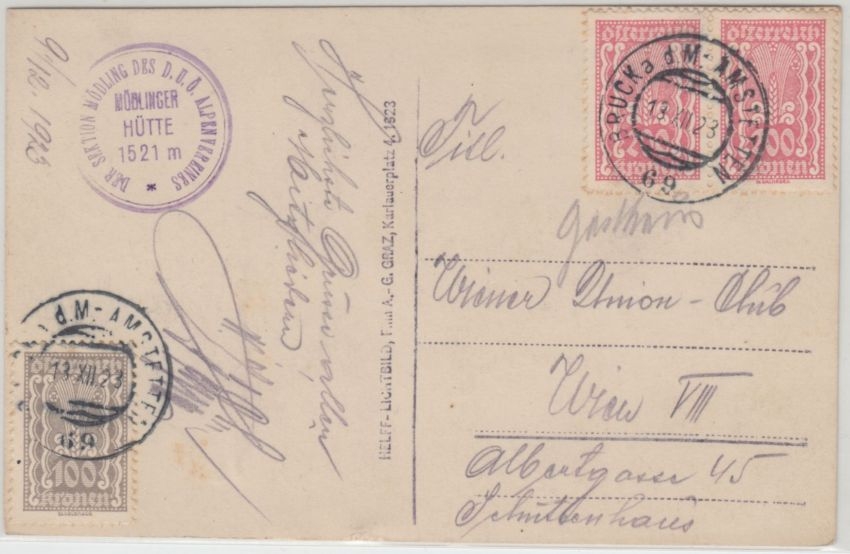 9/12. 1923
DER SEKTION MÖDLING DES D.U.Ö. ALPENVEREINES
MÖDLINGER
HÜTTE
1521 m
*
Herzlichste Grüsse allen
Mitgliedern
HELFF-LICHTBILD, F A.-G. GRAZ, Karlauerplatz 4, 1623
österreich
österreich
kronen
kronen
BRUCK a d M.-AMSTETTEN
13.XII.23
69
Titl.
Gasthaus
Wiener Union-Club
Wien VIII
Albertgasse 45
Schützenhaus
d.M.-AMSTETTEN
13.XII.23
69
100
kronen